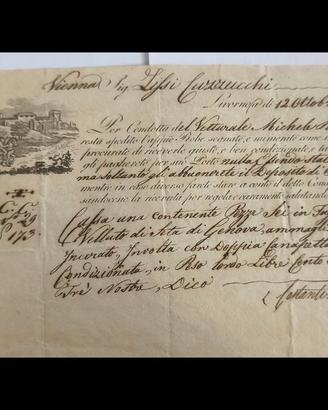 Vienna Sig. Lissi Cuzzucchi
Livorno li de 12 Ottob
Per Condotta del Vetturale Michele
resta spedito l'appiè Robe segnato, e numerate come
procurate di riceverle giuste, e ben condizionate, e
gli pagherete per suo Porto nulla
ma soltanto gli abuonerete il Deposito di
mentre in caso diverso farete stare a conto il detto Con
sandocene la ricevuta per regola e caramente salutando
C.
N. 29
P 173
Cassa una contenente Pezze Sei in
Velluto di Seta di Genova, ammagli
Incerato, Involta con Doppia Canafetta
Condizionata, in Peso lordo Libre Cento
Tré Nostre, Dico
Costantin